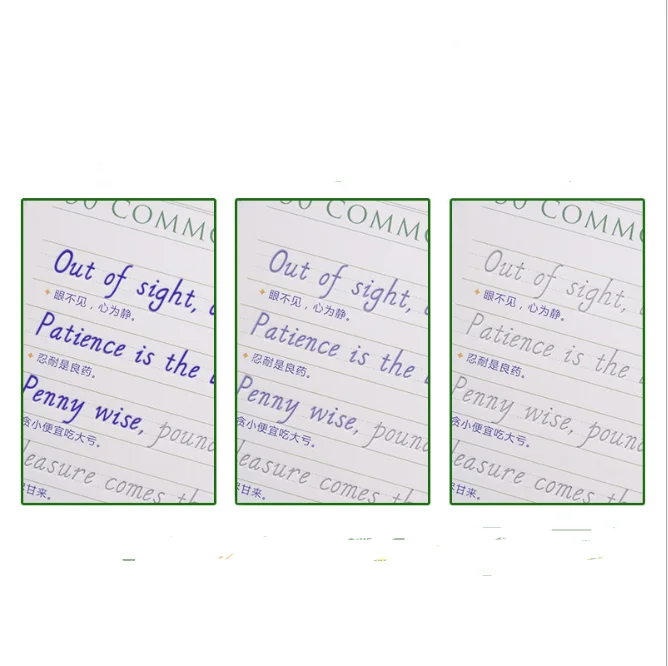 COMMO
Out of sight,
眼不见，心为静。
Patience is the
忍耐是良药。
Penny wise, pound
贪小便宜吃大亏。
comes
甘来。
COMMO
Out of sight,
眼不见，心为静。
Patience is the
忍耐是良药。
Penny wise, pound
贪小便宜吃大亏。
comes
甘来。
COMMO
Out of sight,
眼不见，心为静。
Patience is the
忍耐是良药。
Penny wise, pound
贪小便宜吃大亏。
comes
甘来。